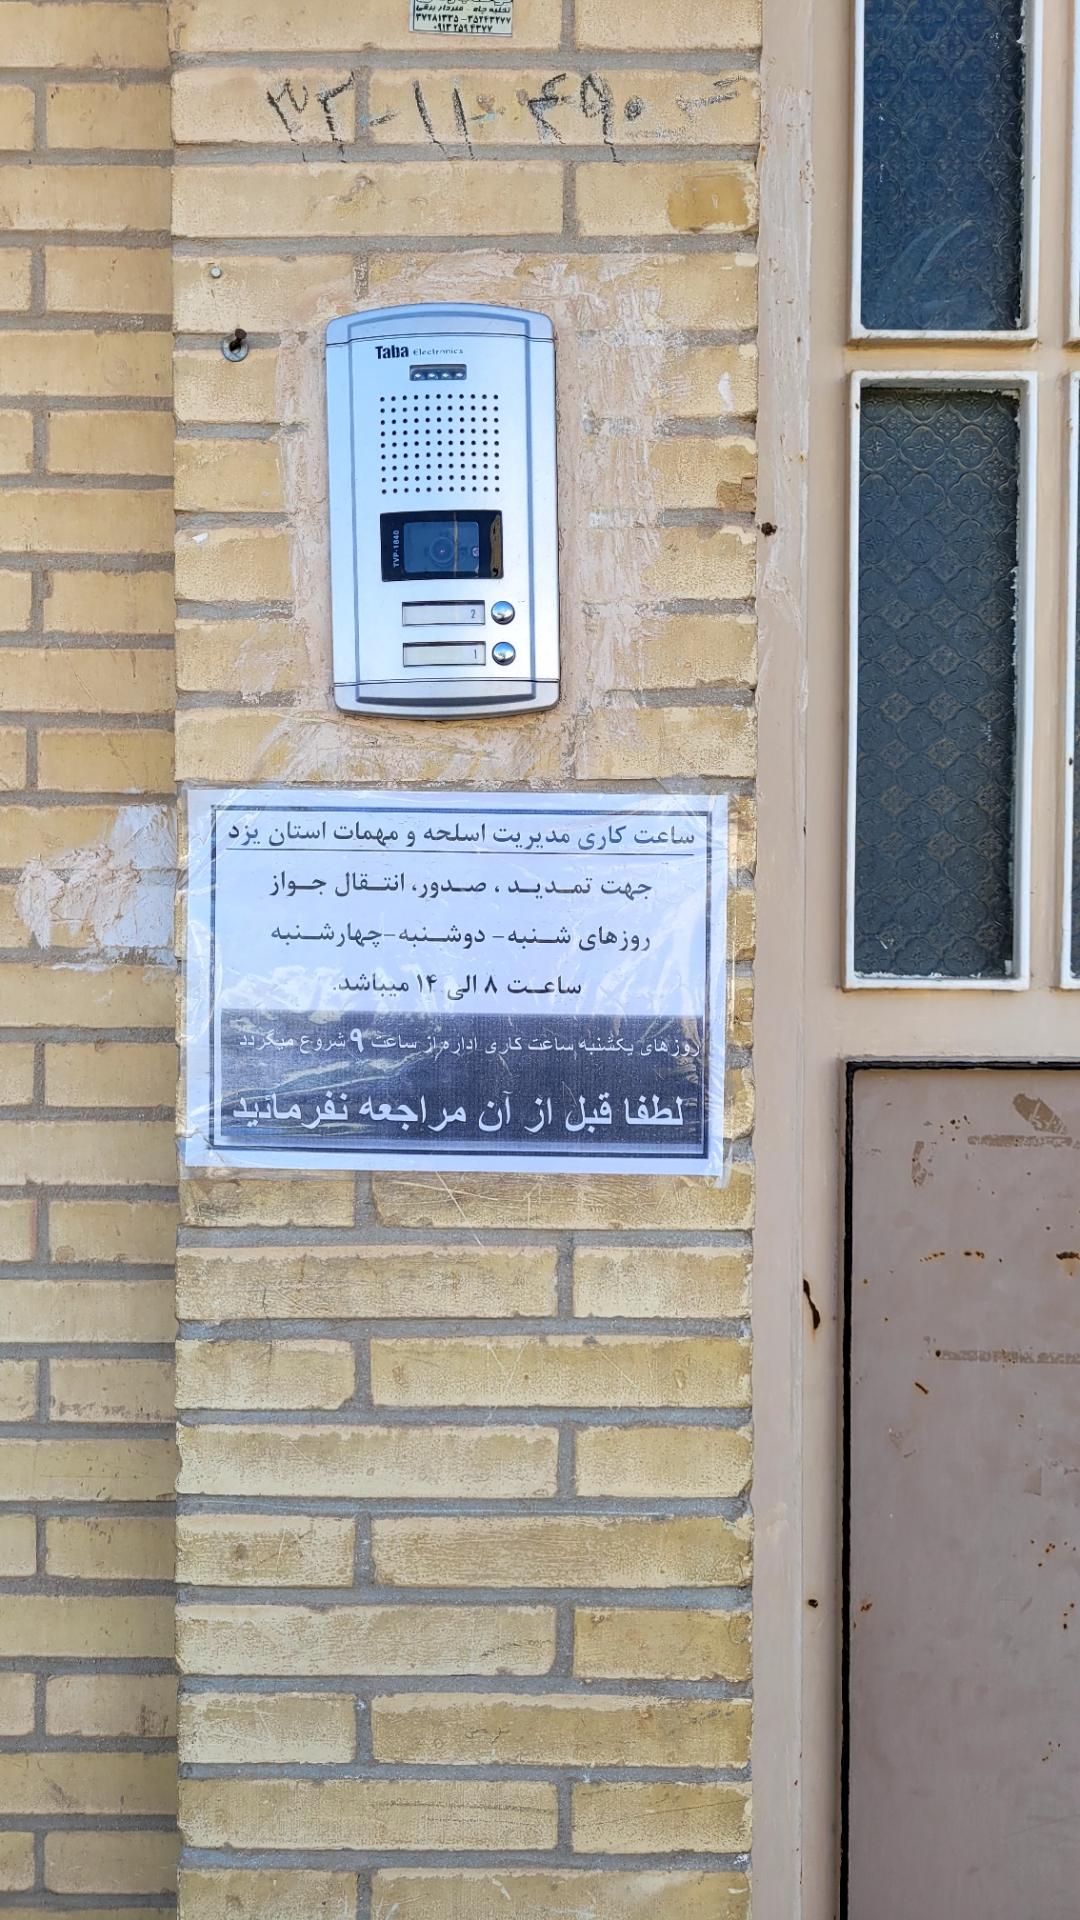 تخلیه چاه - فنردار برقی
۳۷۲۸۱۳۳۵ - ۳۵۲۴۳۲۷۷
۰۹۱۳۲۵۹۴۳۷۷
۳۲-۱۱-۴۹۰
Taba Electronics
TVP-1840
2
1
ساعت کاری مدیریت اسلحه و مهمات استان یزد
جهت تمدید ، صدور، انتقال جواز
روزهای شنبه- دوشنبه-چهارشنبه
ساعت ۸ الی ۱۴ میباشد.
روزهای یکشنبه ساعت کاری اداره از ساعت ۹ شروع میگردد
لطفا قبل از آن مراجعه نفرمائید